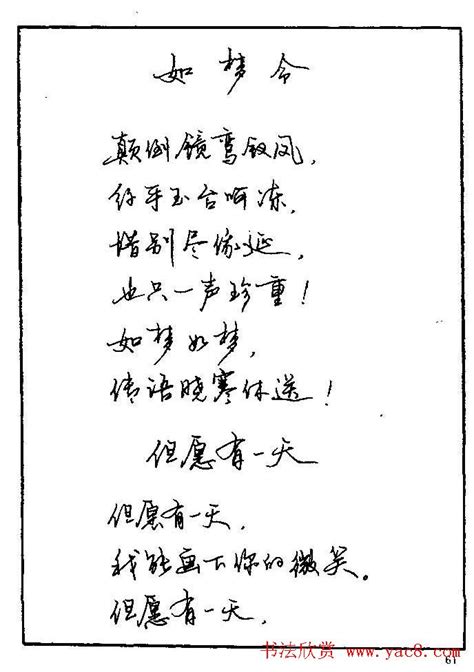 如梦令
颠倒镜鸾钗凤，
纤手玉台呵冻，
惜别尽俄延，
也只一声珍重！
如梦如梦，
传语晓寒休送！
但愿有一天
但愿有一天，
我能画下你的微笑。
但愿有一天，
61
书法欣赏 www.yac8.com